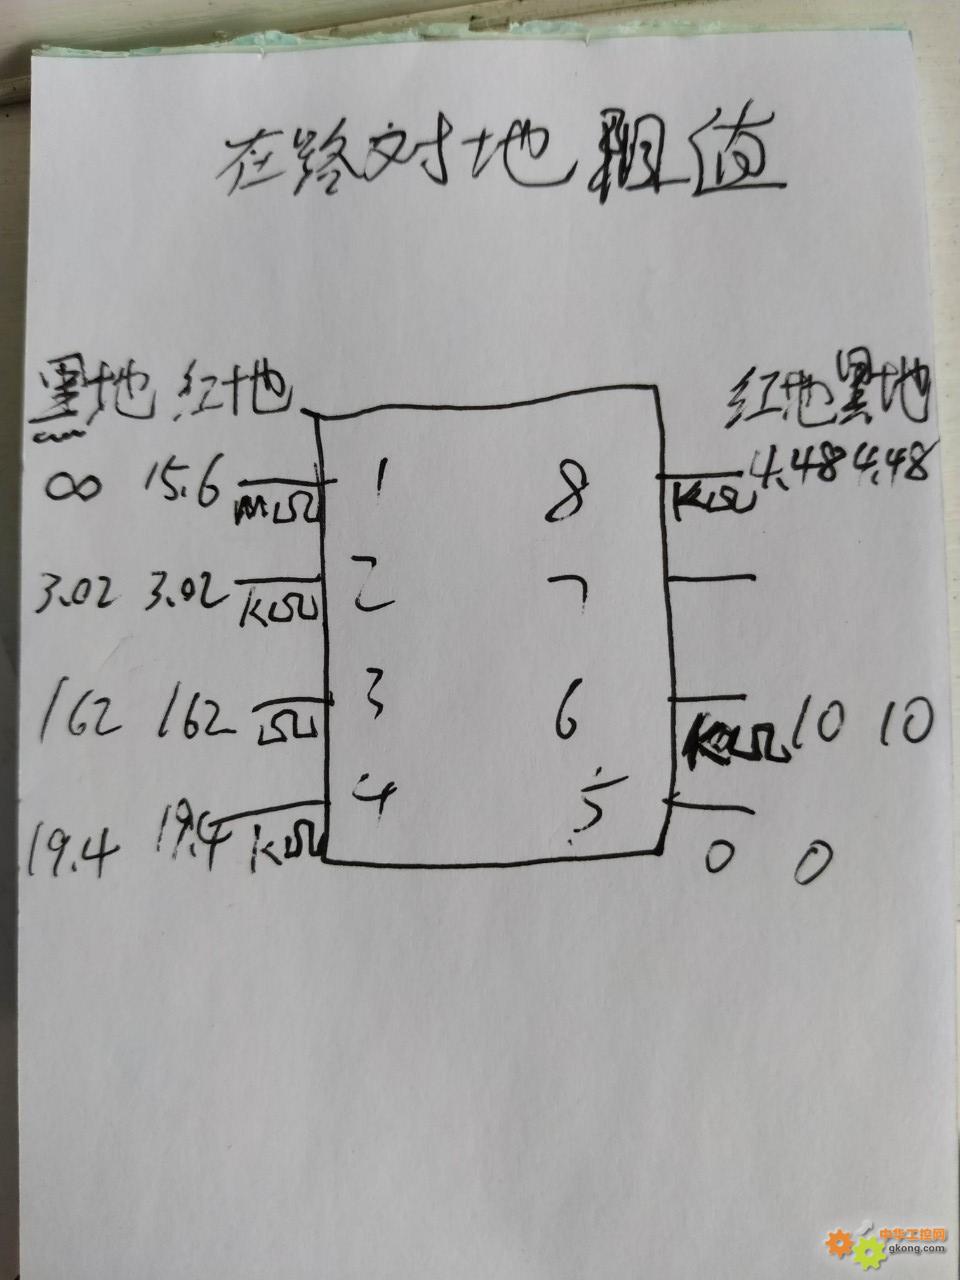 在路对地阻值
黑地 红地 红地 黑地
∞ 15.6 MΩ 1 8 KΩ 4.48 4.48
3.02 3.02 KΩ 2 7
162 162 Ω 3 6 KΩ 10 10
19.4 19.4 KΩ 4 5 0 0
中华工控网
gkong.com